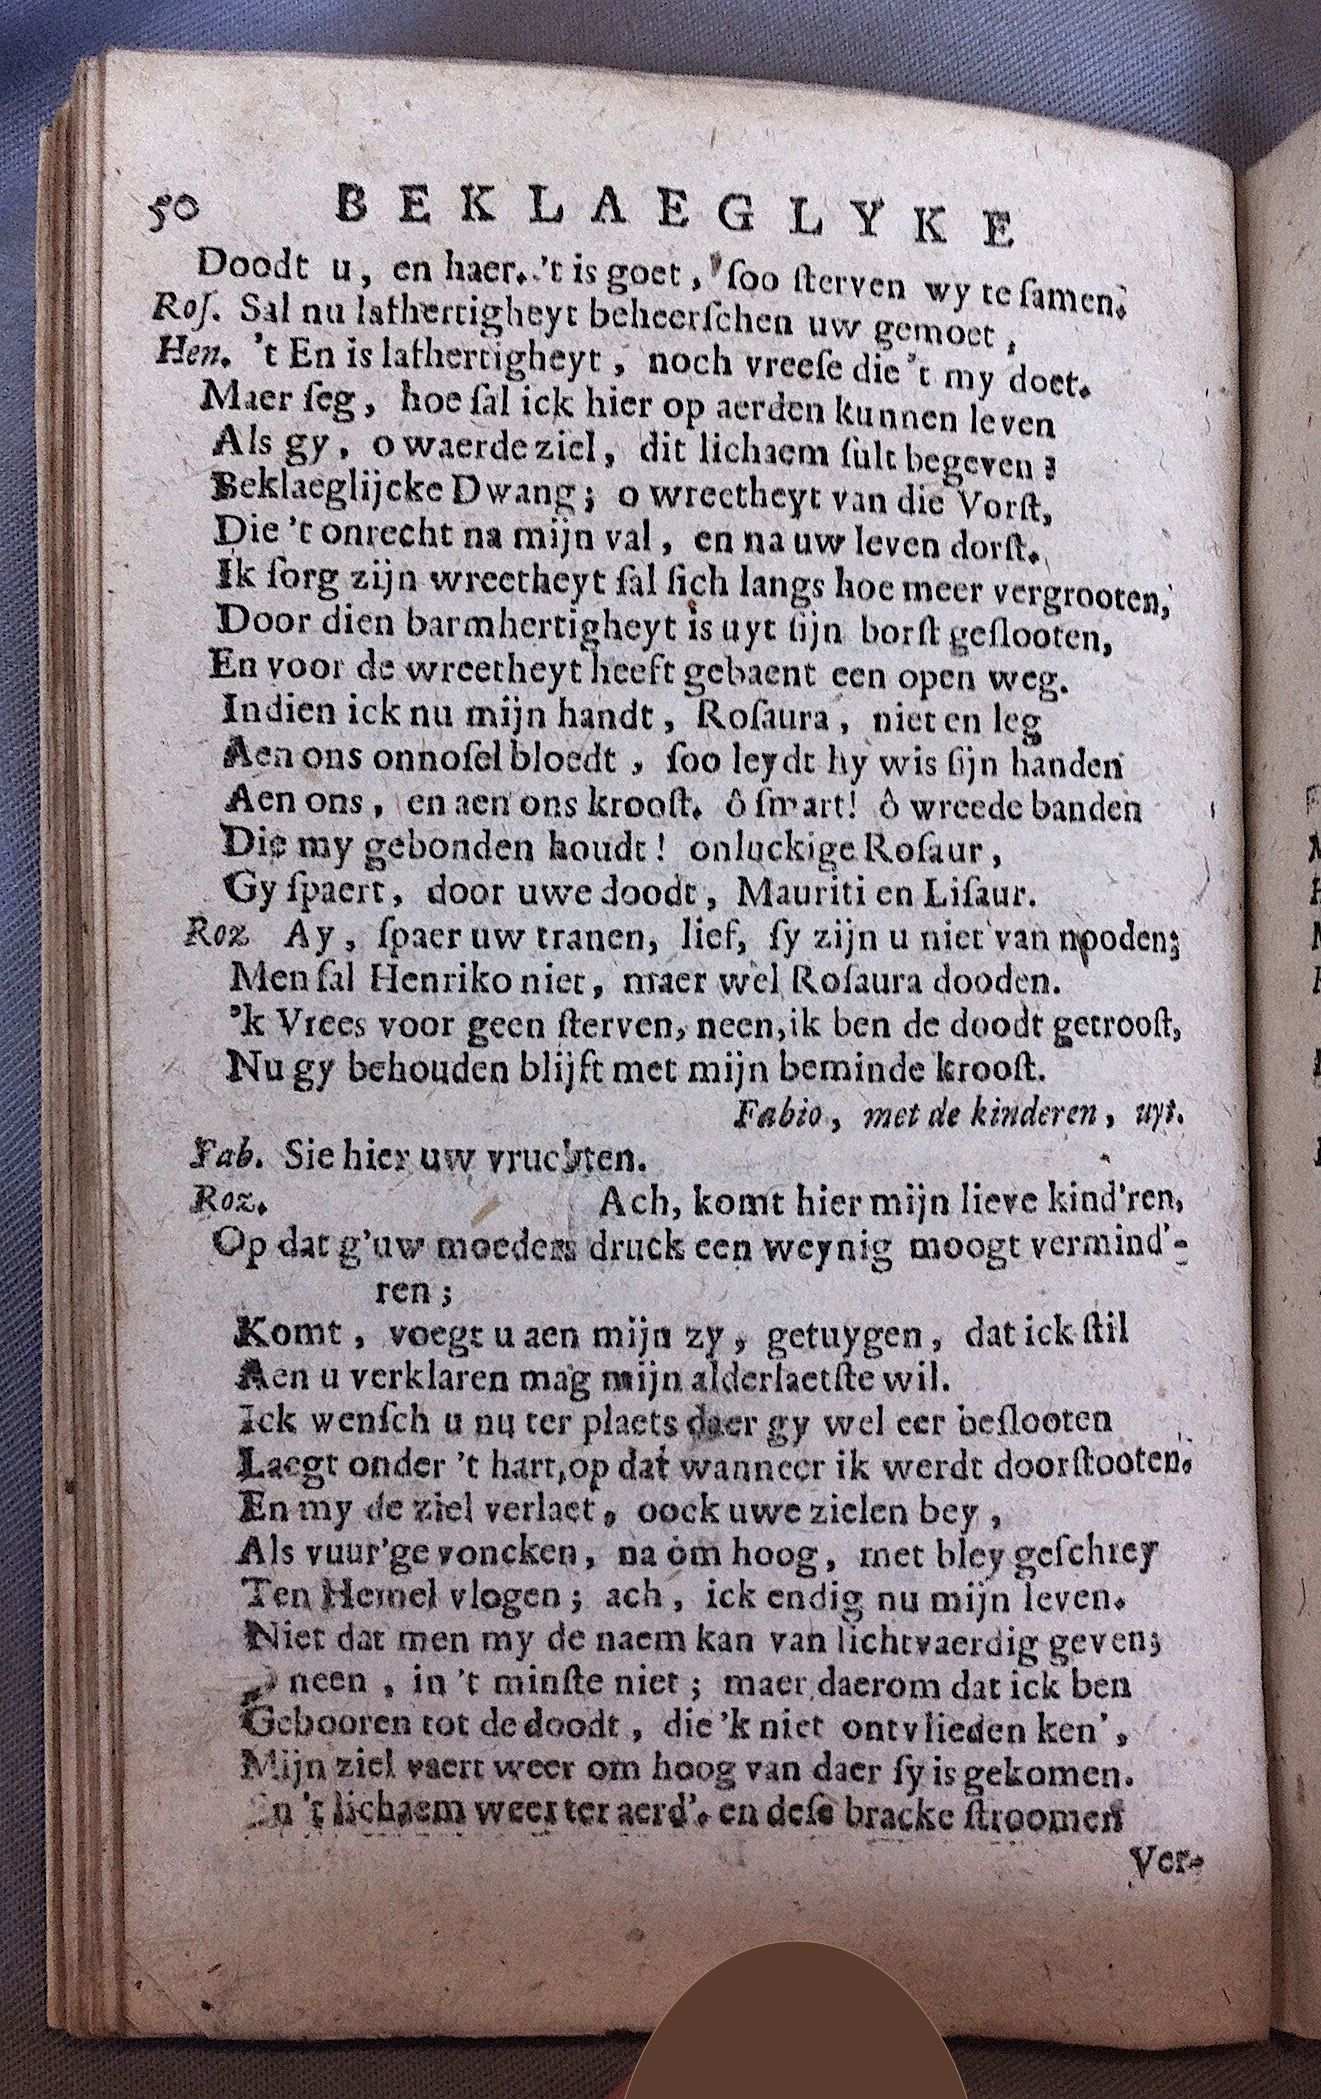 50 BEKLAEGLYKE
Doodt u, en haer. 't is goet, ſoo ſterven wy te ſamen.
Roſ. Sal nu lafhertigheyt beheerſchen uw gemoet,
Hen. 't En is lafhertigheyt, noch vreeſe die 't my doet.
Maer ſeg, hoe ſal ick hier op aerden kunnen leven
Als gy, o waerde ziel, dit lichaem ſult begeven?
Beklaeglijcke Dwang; o wreetheyt van die Vorſt,
Die 't onrecht na mijn val, en na uw leven dorſt.
Ik ſorg zijn wreetheyt ſal ſich langs hoe meer vergrooten,
Door dien barmhertigheyt is uyt ſijn borſt geſlooten,
En voor de wreetheyt heeft gebaent een open weg.
Indien ick nu mijn handt, Roſaura, niet en leg
Aen ons onnoſel bloedt, ſoo leydt hy wis ſijn handen
Aen ons, en aen ons krooſt. ô ſmart! ô wreede banden
Die my gebonden houdt! onluckige Roſaur,
Gy ſpaert, door uwe doodt, Mauriti en Liſaur.
Roz Ay, ſpaer uw tranen, lief, ſy zijn u niet van nooden;
Men ſal Henriko niet, maer wel Roſaura dooden.
'k Vrees voor geen ſterven, neen, ik ben de doodt getrooſt,
Nu gy behouden blijft met mijn beminde krooſt.
Fabio, met de kinderen, uyt.
Fab. Sie hier uw vruchten.
Roz. Ach, komt hier mijn lieve kind'ren,
Op dat g'uw moeders druck een weynig moogt vermind'-
ren;
Komt, voegt u aen mijn zy, getuygen, dat ick ſtil
Aen u verklaren mag mijn alderlaetſte wil.
Ick wenſch u nu ter plaets daer gy wel eer beſlooten
Laegt onder 't hart, op dat wanneer ik werdt doorſtooten.
En my de ziel verlaet, oock uwe zielen bey,
Als vuur'ge voncken, na om hoog, met bley geſchrey
Ten Hemel vlogen; ach, ick endig nu mijn leven.
Niet dat men my de naem kan van lichtvaerdig geven;
neen, in 't minſte niet; maer daerom dat ick ben
Gebooren tot de doodt, die 'k niet ontvlieden ken',
Mijn ziel vaert weer om hoog van daer ſy is gekomen.
En 't lichaem weer ter aerd'. en deſe bracke ſtroomen
Ver-